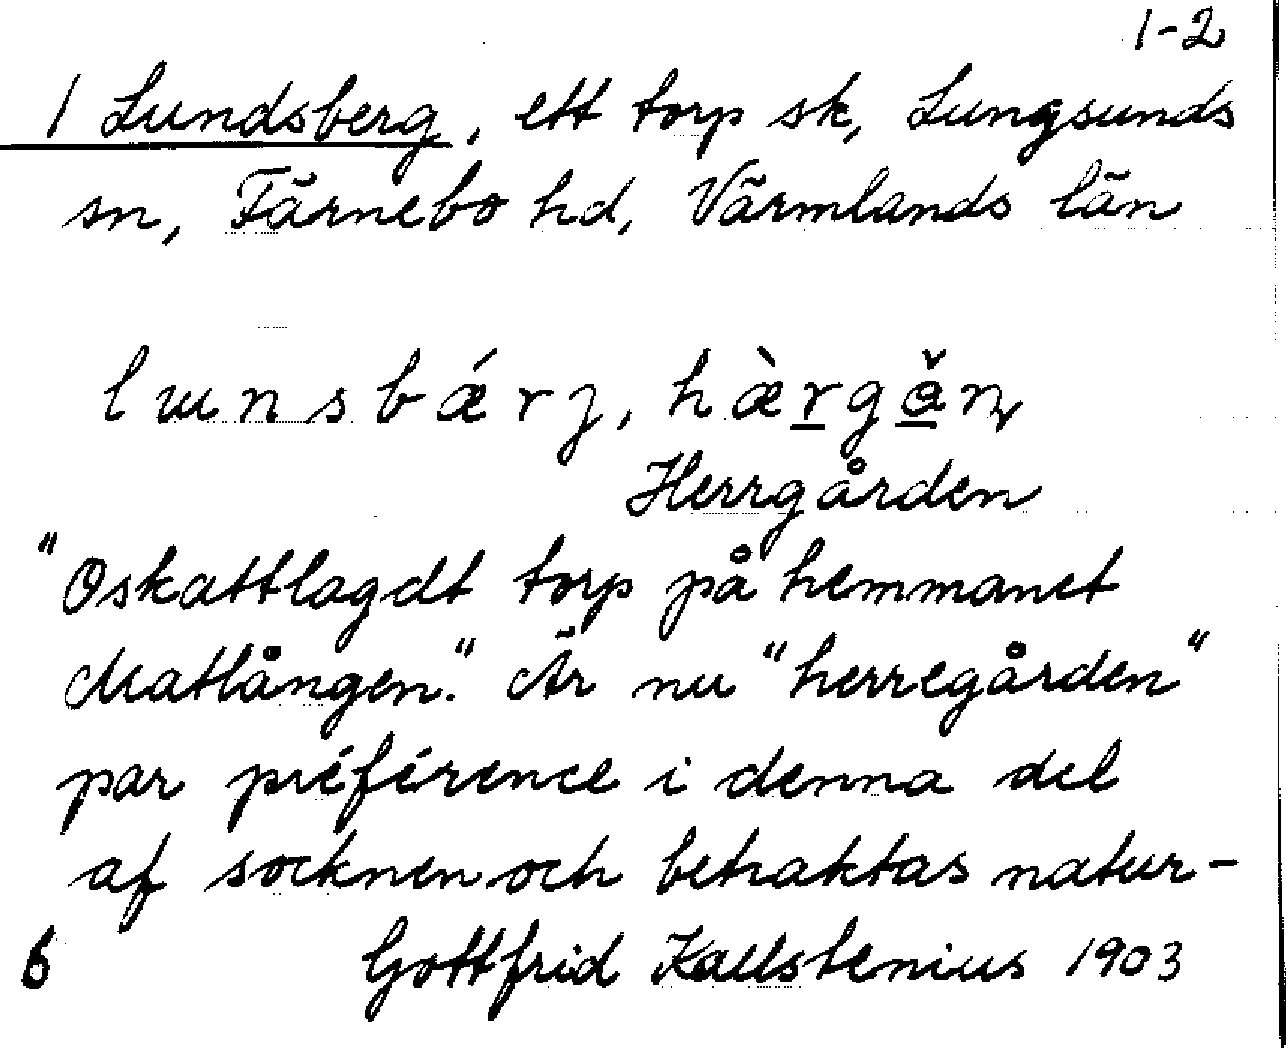 1-2
1 Lundsberg, ett torp sk, Lungsunds
sn, Färnebo hd, Värmlands län
lɯnsbǽrȷ, hæ̀rgǎɳ
Herrgården
"Oskattlagdt torp på hemmanet
Matlången." Är nu "herregården"
par préférence i denna del
af socknen och betraktas natur-
6 Gottfrid Kallstenius 1903